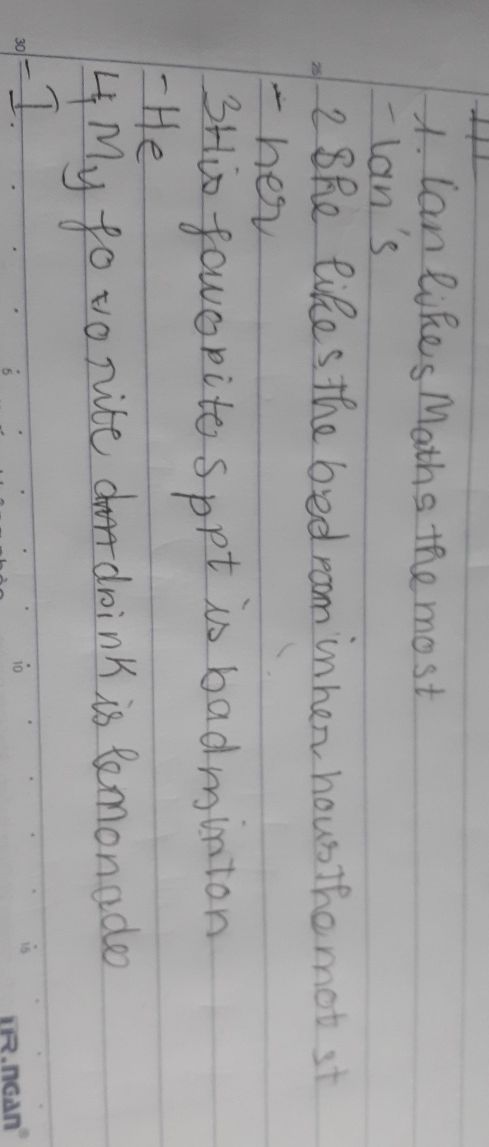 III
1. Lan likes Maths the most
- Lan's
2 She likes the bed room in her hous the mot st
- her
3 His favorite sppt is badminton
- He
4 My favorite drink is lemonade
- I
TR.NGAN